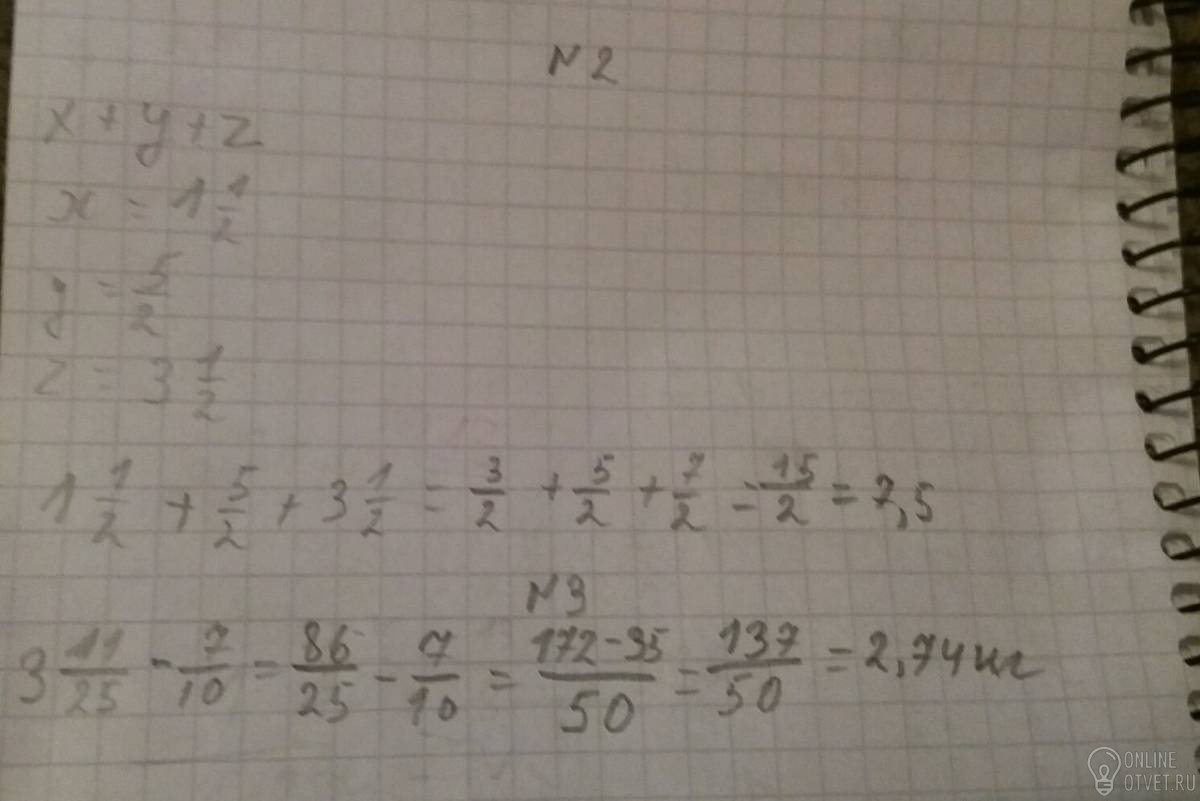 N2
x + y + z
x = 1 1/2
y = 5/2
z = 3 1/2
1 1/2 + 5/2 + 3 1/2 = 3/2 + 5/2 + 7/2 = 15/2 = 7,5
N3
3 11/25 - 7/10 = 86/25 - 7/10 = 172-35/50 = 137/50 = 2,74 кг
ONLINE
OTVET.RU